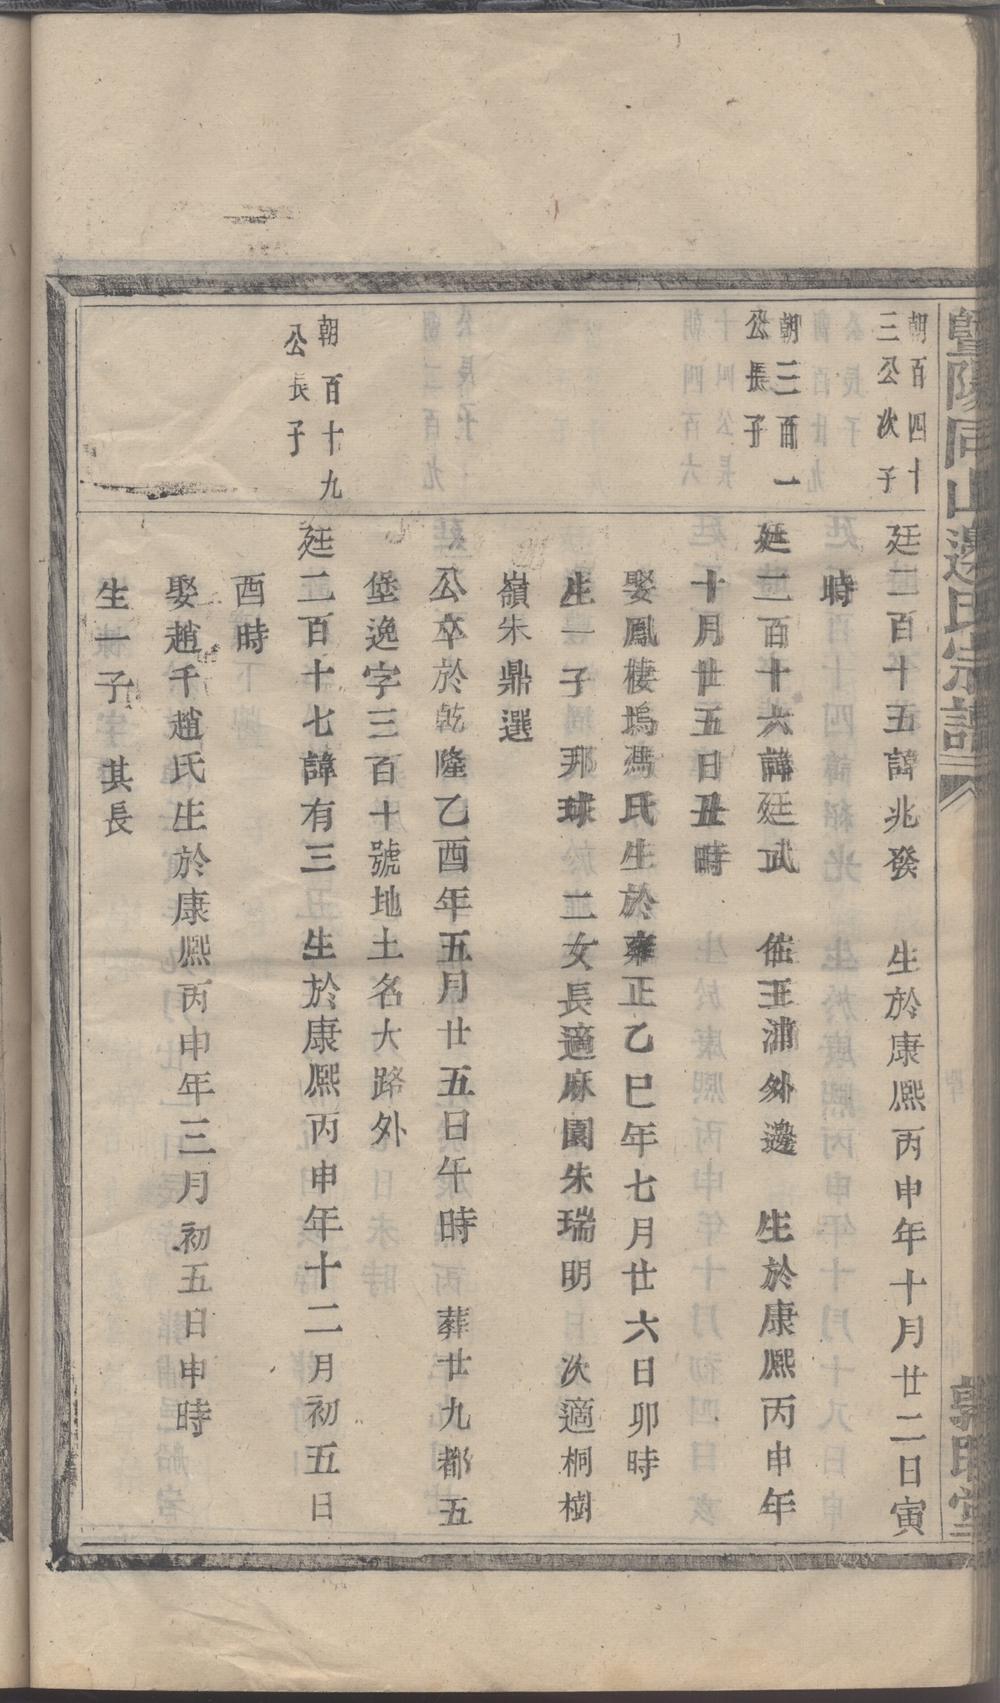 暨陽同山邊氏宗譜
敦睦堂
朝百四十
三公次子
廷二百十五諱兆發　生於康熙丙申年十月廿二日寅
時
朝三百一
公長子
廷二百十六諱廷武　住王浦外邊　生於康熙丙申年
十月廿五日丑時
娶鳳棲塢馮氏生於雍正乙巳年七月廿六日卯時
生一子　邦球　二女長適麻園朱瑞明　次適桐樹
嶺朱鼎選
公卒於乾隆乙酉年五月廿五日午時　葬廿九都五
堡逸字三百十號地土名大路外
朝百十九
公長子
廷二百十七諱有三　生於康熙丙申年十二月初五日
酉時
娶趙千趙氏生於康熙丙申年三月初五日申時
生一子　其長